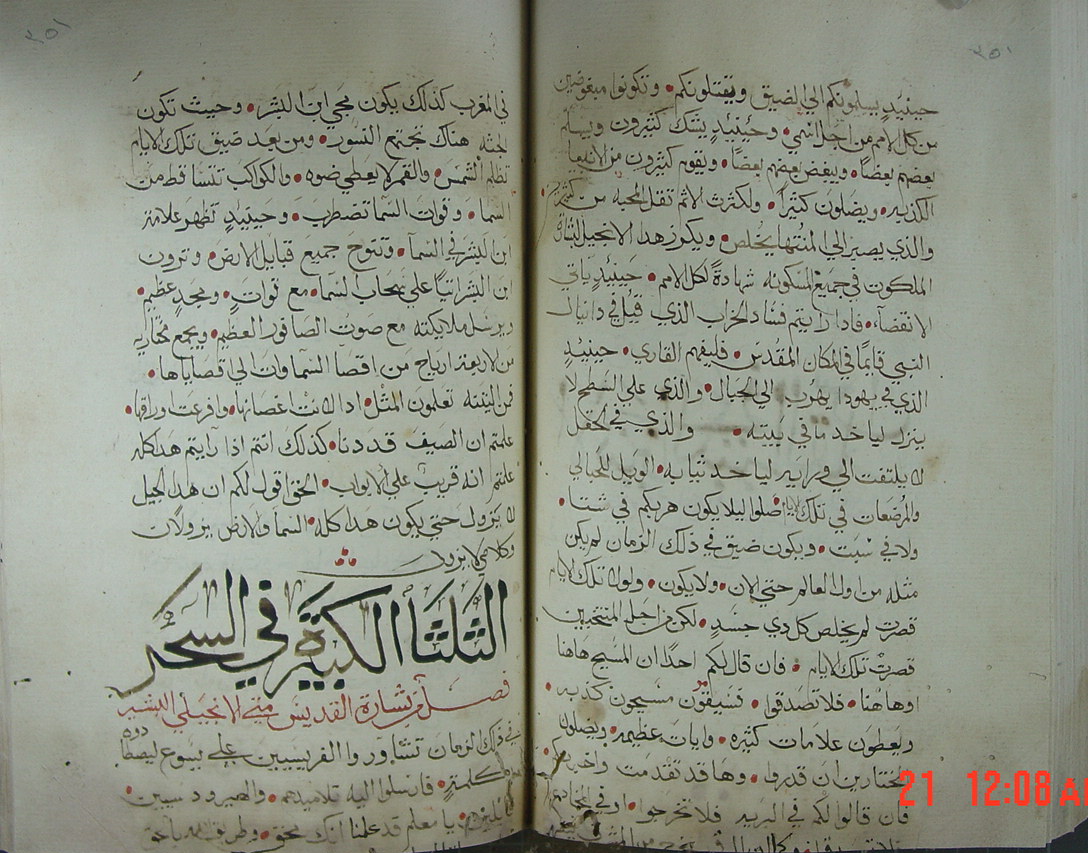 ٣٥١
حينيذٍ يسلمونكم الي الضيق ويقتلونكم • وتكونوا مبغوضين
من كل الامم من اجل اسمي • وحينيذٍ يشك كثيرون ويسلم
بعضهم بعضًا • ويبغض بعضهم بعضًا • ويقوم كثيرون من الانبيا
الكذبه • ويضلون كثيرًا • ولكثرت الاثم تقل المحبه من كثير
والذي يصبر الي المنتها يخلص • ويكرز هدا الانجيل لبشارة
الملكوت في جميع المسكونه شهادةً لكل الامم • حينيذٍ ياتي
الانقضاء • فادا رايتم فساد الخراب الذي قيل في دانيال
النبي قايمًا في المكان المقدس • فليفهم القاري • حينيذٍ
الذي في يهودا يهرب الي الجبال • والذي علي السطح لا
ينزل لياخد ما في بيته • والذي في الحقل
لا يلتفت الي ورايه لياخد ثيابه • الويل للحبالي
والمرضعات في تلك الايام • صلوا ليلا يكون هربكم في شتا •
ولا في سبت • ويكون ضيق في ذلك الزمان لم يكن
مثله من اول العالم حتي الان • ولا يكون • ولولا تلك الايام
قصرت لم يخلص كل دي جسدٍ • لكن من اجل المنتخبين
قصرت تلك الايام • فان قال لكم احدًا ان المسيح هاهنا
او هاهنا • فلا تصدقوا • فسيقوم مسيحون كدبه •
ويعطون علامات كثيره • وايات عظيمه • ويضلون
المختارين ان قدروا • وها قد تقدمت واخبرتكم •
فان قالوا لكم في البريه فلا تخرجوا • او في المخادع
٣٥١
في المغرب كذلك يكون مجي ابن البشر • وحيث تكون
الجثه هناك تجتمع النسور • ومن بعد ضيق تلك الايام
تظلم الشمس • والقمر لا يعطي ضوه • والكواكب تتساقط من
السما • وقوات السما تضطرب • وحينيذٍ تظهر علامة
ابن البشر في السمآ • وتنوح جميع قبايل الارض • وترون
ابن البشر اتيًا علي سحاب السما • مع قوات • ومجدٍ عظيم •
ويرسل ملايكته مع صوت الصافور العظيم • ويجمع مختاريه
من الاربعة ارياح من اقصا السماوات الي اقصاياها •
فمن التينه تعلمون المثل • ادا لانت اغصانها • وافرعت اوراقها •
علمتم ان الصيف قد دنا • كذلك انتم اذا رايتم هدا كله
علمتم انه قريب علي الابواب • الحق اقول لكم ان هدا الجيل
لا يزول حتي يكون هدا كله • السما والارض يزولان
وكلامي لا يزول
الثلثا الكبيرة في السحر
فصل من بشارة القديس متي الانجيلي البشير
في ذلك الزمان تشاوروا الفريسيين علي يسوع ليصطادوه
بكلمةٍ • فارسلوا اليه تلاميدهم • والهيرودسيين •
قايلين • يا معلم قد علمنا انك محق • وطريق الله بالحق